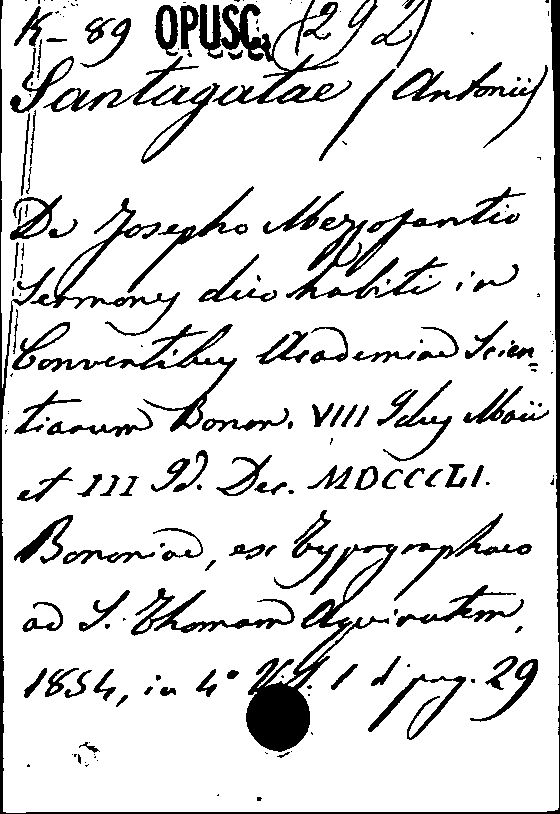 K-89 OPUSC. (292)
Santagatae (Antonii)
De Josepho Mezzofantio
Sermones duo habiti in
Conventibus Academiae Scien=
tiarum Bonon. VIII Idus Maii
et III Id. Dec. MDCCCLI.
Bononiae, ex typographaeo
ad S. Thomam Aquinatem,
1854, in 4° 1 di pag. 29